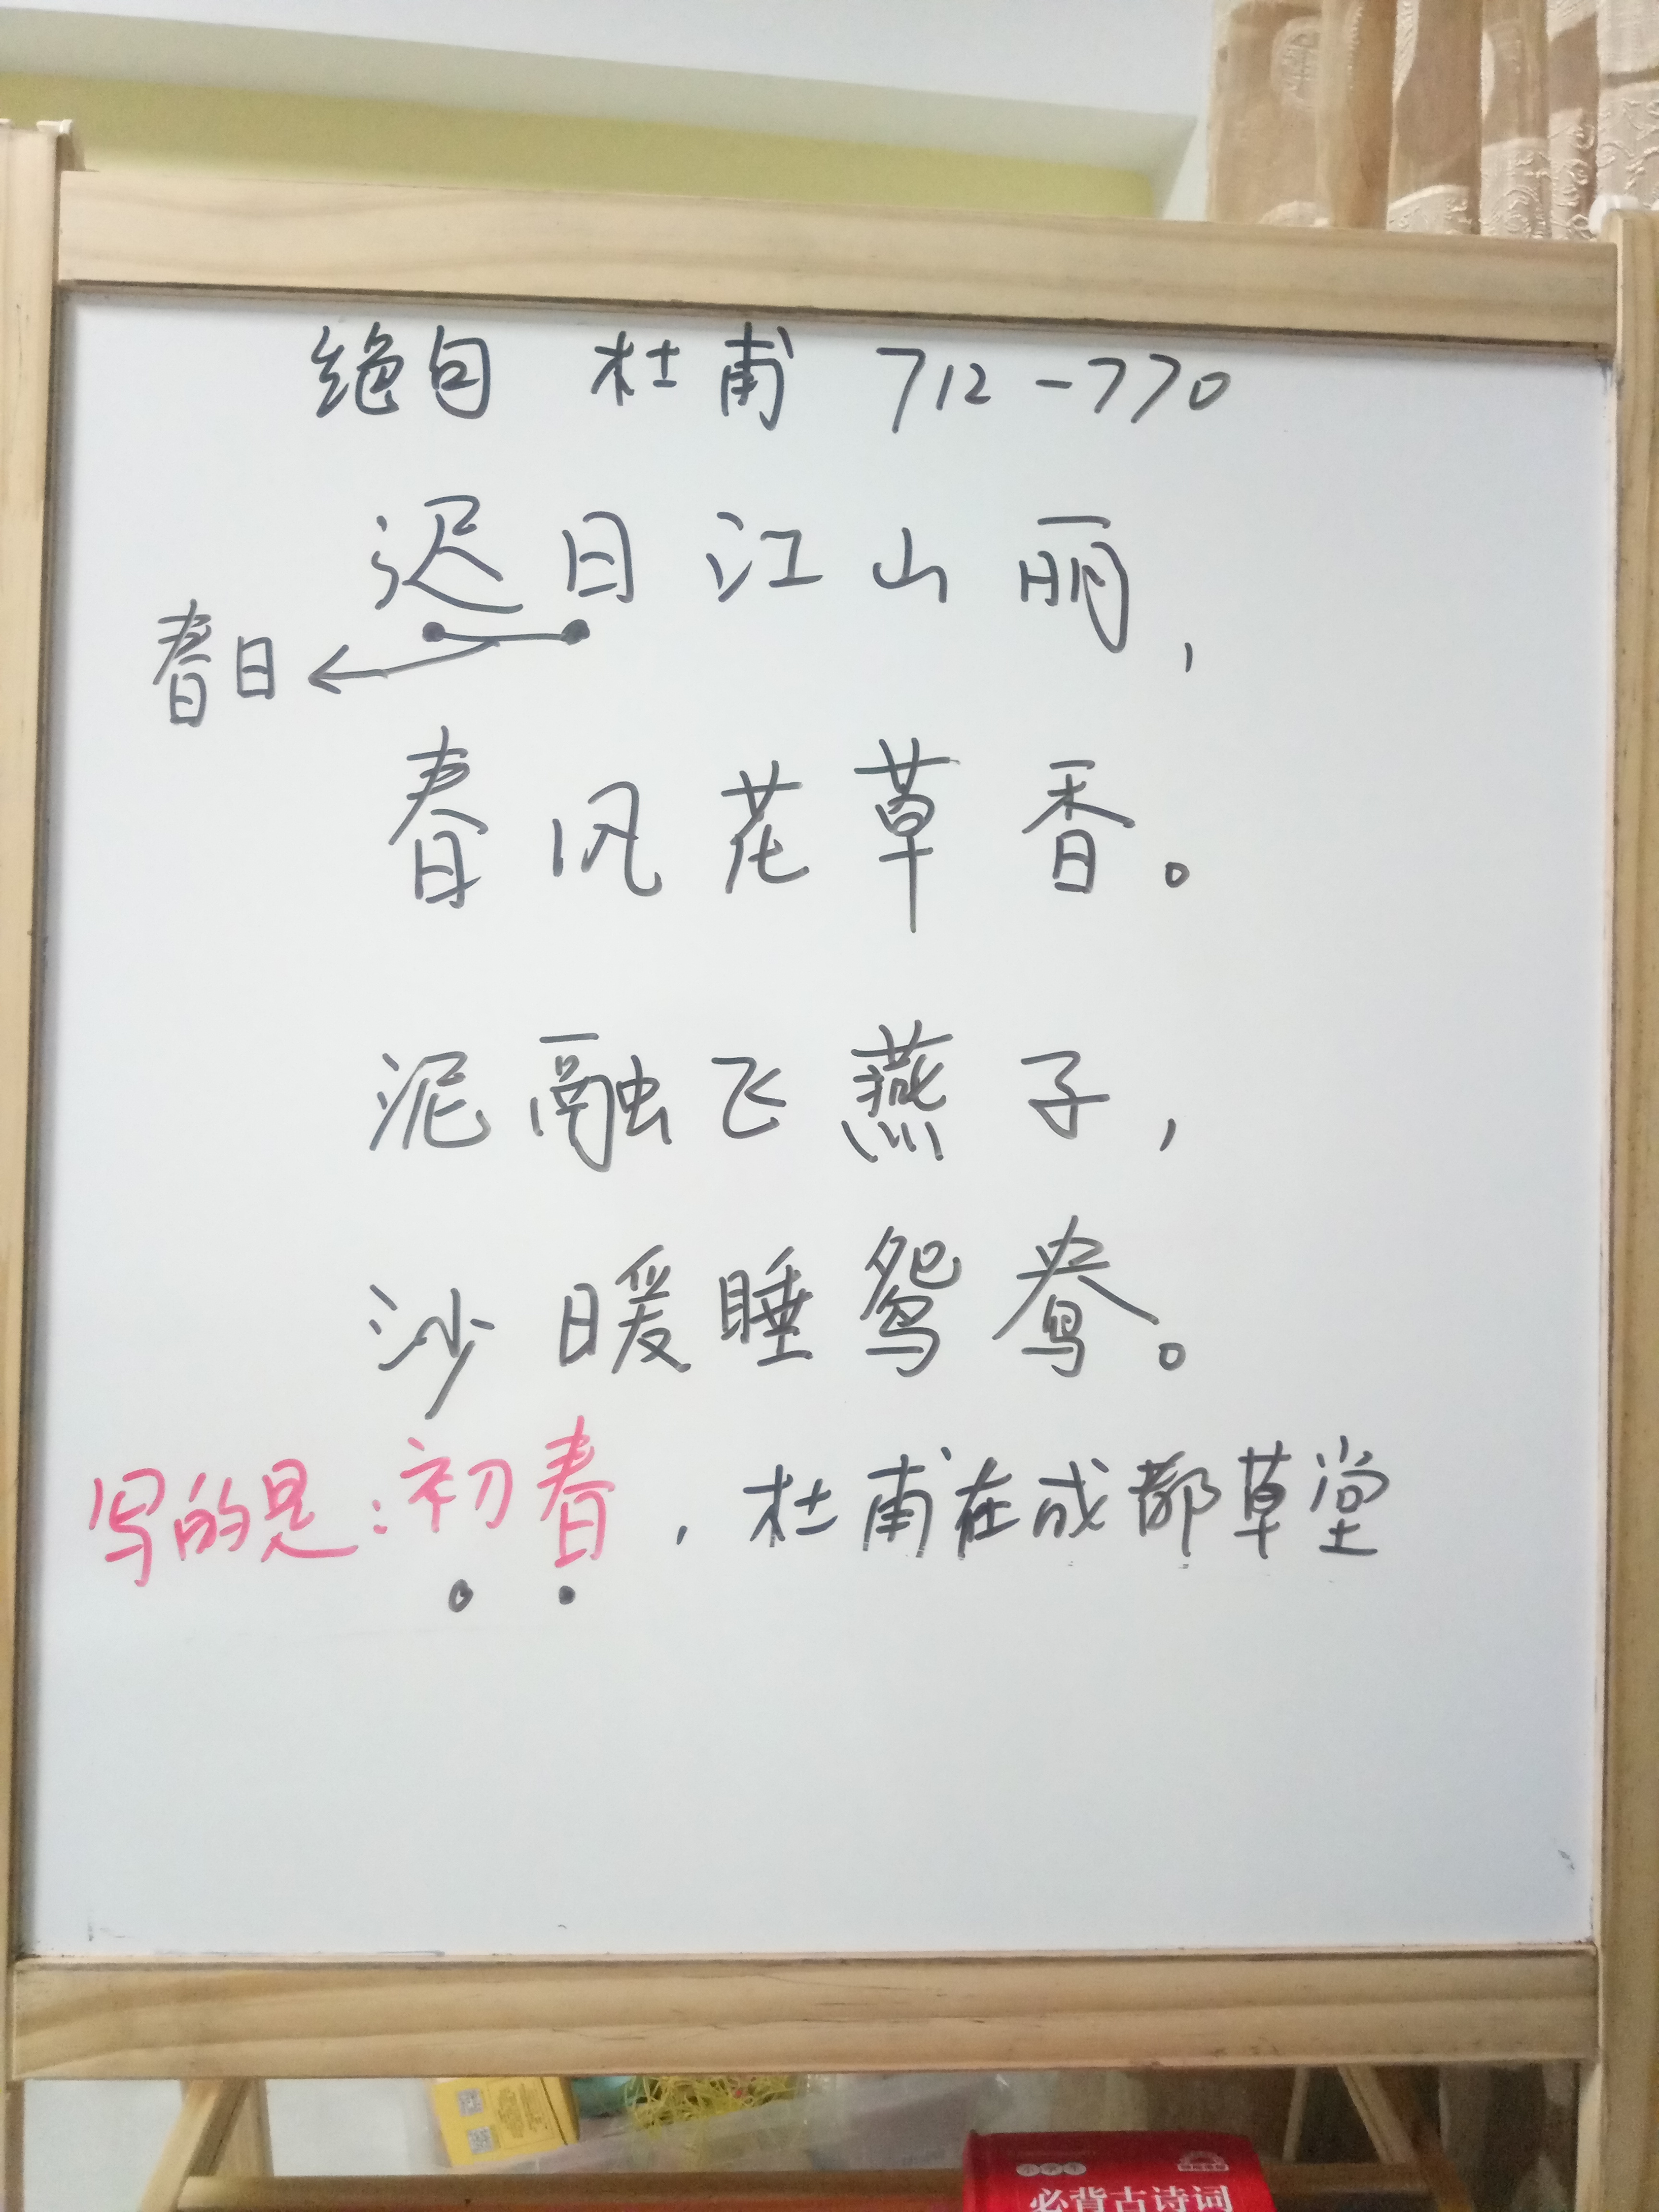 绝句 杜甫 712-770
迟日江山丽,
春日
春风花草香。
泥融飞燕子,
沙暖睡鸳鸯。
写的是:初春,杜甫在成都草堂
小学生
必背古诗词